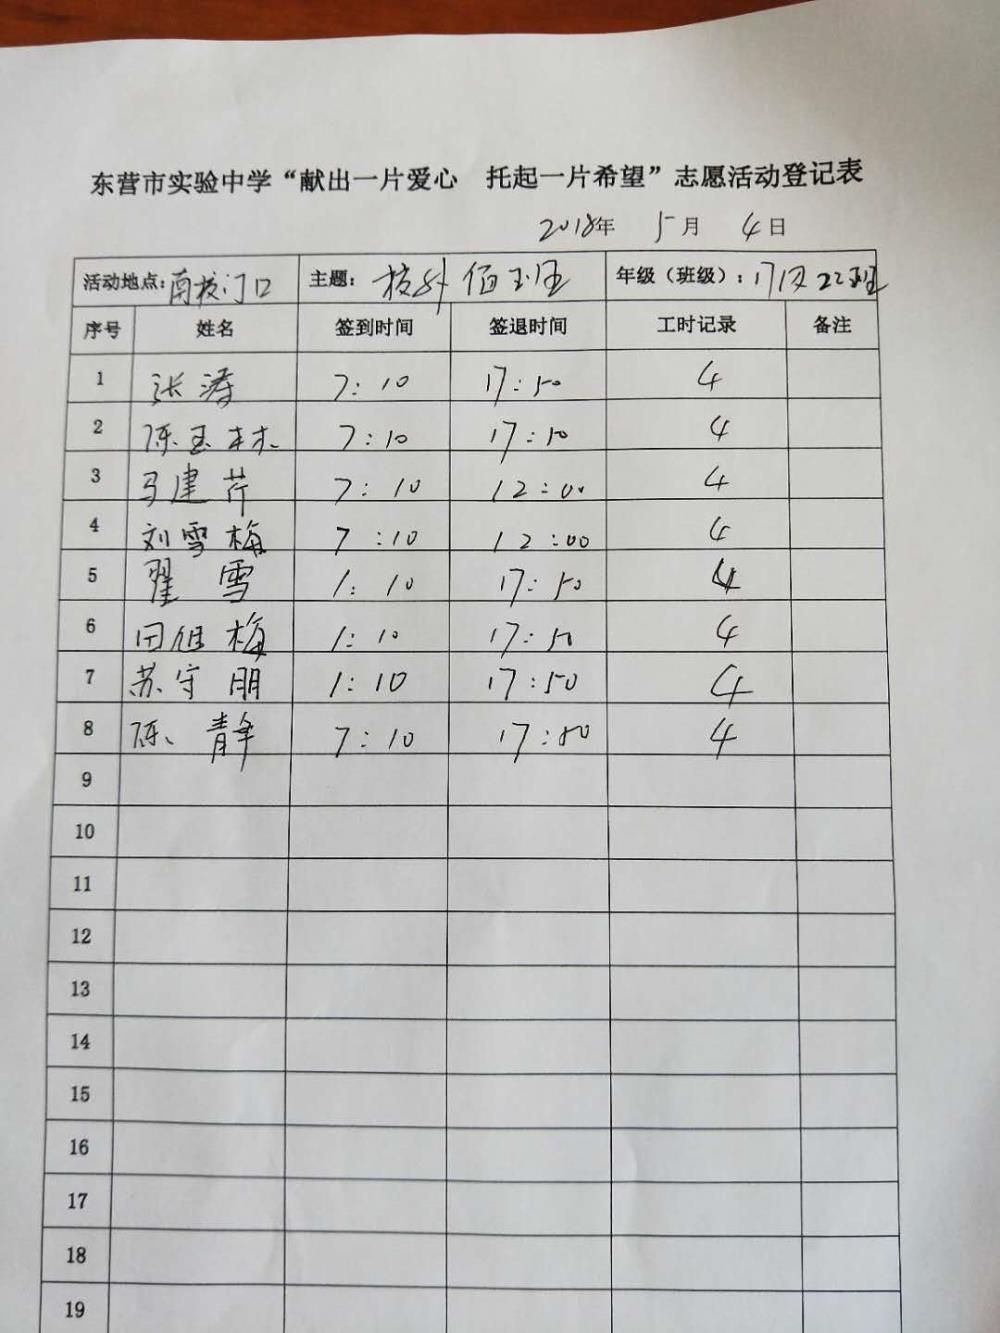 东营市实验中学“献出一片爱心 托起一片希望”志愿活动登记表
2018年 5月 4日
活动地点:南校门口 主题: 校外值班 年级（班级）: 17级22班
序号 姓名 签到时间 签退时间 工时记录 备注
1 张涛 7:10 17:50 4
2 陈玉林 7:10 17:10 4
3 马建芹 7:10 12:00 4
4 刘雪梅 7:10 12:00 4
5 翟雪 1:10 17:50 4
6 田 梅 1:10 17:50 4
7 苏守朋 1:10 17:50 4
8 陈静 7:10 17:50 4
9
10
11
12
13
14
15
16
17
18
19